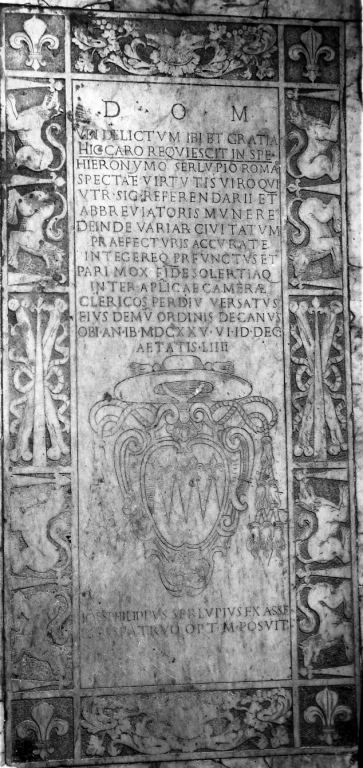 D O M
VBI DELICTVM IBI ET GRATIA
HIC CARO REQVIESCIT IN SPE
HIERONYMO SERLVPIO ROMA
SPECTATÆ VIRTVTIS VIRO QVI
VTR·SIG·REFERENDARII ET
ABBREVIATORIS MVNERE
DEINDE VARIAR·CIVITATVM
PRAEFECTVRIS ACCVRATE
INTEGEREQ PRFVNCTVS ET
PARI MOX FIDE SOLERTIAQ
INTER APLICAE CAMERÆ
CLERICOS PERDIV VERSATVS
EIVS DEMV ORDINIS DECANVS
OBI·AN·IB·MDCXXV·VI·ID·DEC
AETATIS·LIIII
IOS PHILIPPVS SERLVPIVS EX ASSE
PATRVO OPT M POSVIT